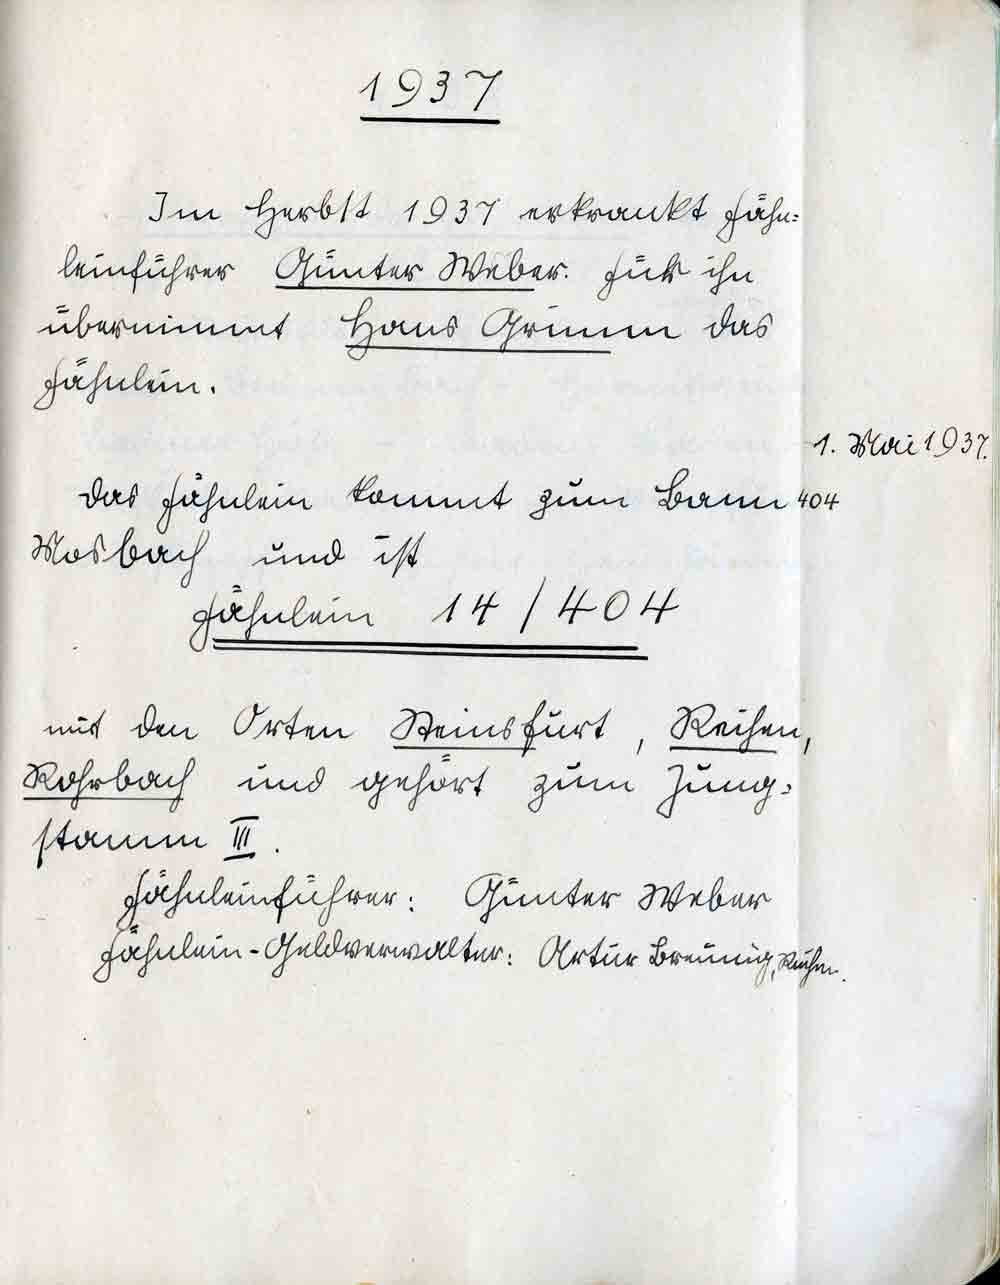 1937
Im Herbst 1937 erkrankt Fähn=
leinführer Günter Weber. Für ihn
übernimmt Hans Grimm das
Fähnlein.
1. Mai 1937.
Das Fähnlein kommt zum Bann 404
Mosbach und ist
Fähnlein 14/404
mit den Orten Steinsfurt, Reihen,
Rohrbach und gehört zum Jung=
stamm III.
Fähnleinführer: Günter Weber
Fähnlein-Geldverwalter: Artur Breunig, Reihen.